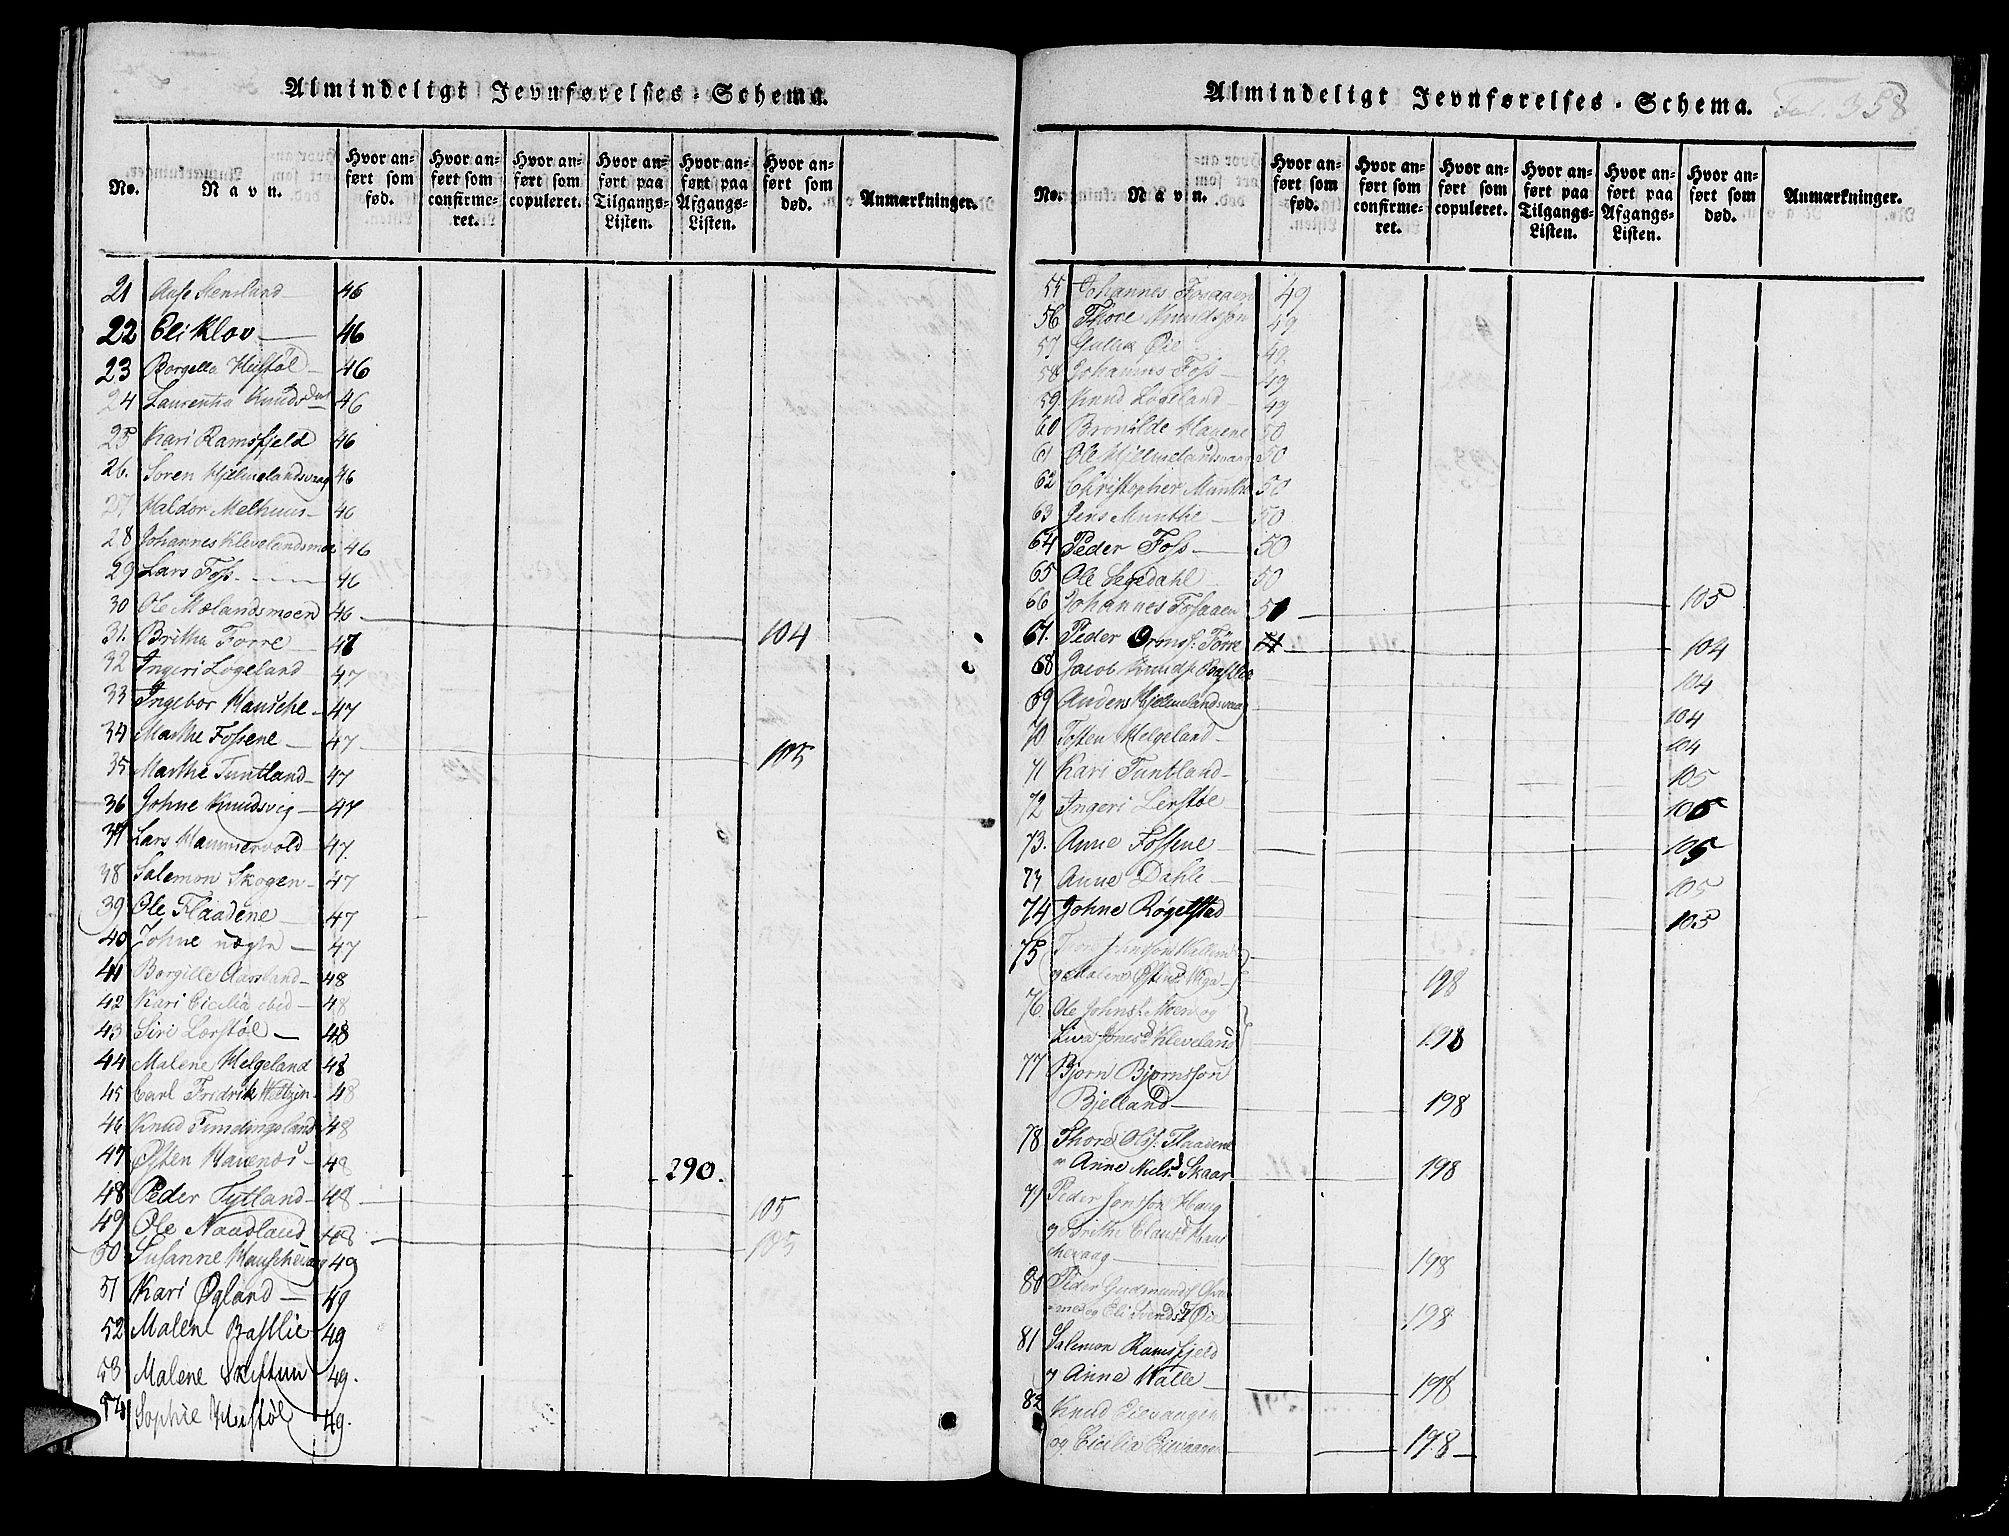 Almindeligt Jevnførelses-Schema.
No. Navn. Hvor anført som fød. Hvor anført som confirmeret. Hvor anført som copuleret. Hvor anført paa Tilgangs-Listen. Hvor anført paa Afgangs-Listen. Hvor anført som død. Anmærkninger.
21 Aase Stensland 46
22 Eli Klov 46
23 Borgella Hiistøl 46
24 Laurentia Knudsdat 46
25 Kari Ramsfjeld 46
26. Soren Hjelmelandsvaag 46
27 Haldor Melhuus 46
28 Johannes Klevelandsmoe 46
29 Lars Foss 46
30 Ole Mælandsmoen 46 104
31. Britha Førre 47
32 Ingeri Løgeland 47
33 Ingebor Hausche 47
34 Marthe Fossene 47 105
35 Marthe Tuntland 47
36 Johne Knudsvig 47
37 Lars Hammervold 47.
38 Salemon Skogen 47
39 Ole Flaadene 47
40 Johne 47
41 Borgille Aarsland 48
42 Kari Cicilia ibid 48
43 Siri Lorstøl 48
44 Malene Helgeland 48
45 Carl Fridrik 48
46 Knud Fundingsland 48
47 Østen 48 290.
48 Peder Tytland 48 105
49 Ole Naadland 48 105
50 Susanne Hauschevaag 49
51 Kari Øgland 49
52 Malene Bastlie 49
53 Malene Skiftun 49.
54 Sophie Hustøl 49.
Almindeligt Jevnførelses-Schema. Fol. 358
No. Navn. Hvor anført som fød. Hvor anført som confirmeret. Hvor anført som copuleret. Hvor anført paa Tilgangs-Listen. Hvor anført paa Afgangs-Listen. Hvor anført som død. Anmærkninger.
55 Johannes Fosaaen 49
56 Thore Knudsøn 49
57 Øie 49
58 Johannes Foss 49
59 Knud Løgeland 49
60 Bronilde 50
61 Ole Hjelmelandsvaag 50
62 Christopher Munthe 50
63 Jens Munthe 50
64 Peder Foss 50
65 Ole Segedahl 50
66 Johannes Fosaaen 51 105
67. Peder Ormss: Førre 104
68 Jacob Knuds: 104
69 Anders Hjelmelandsvaag 104
70 Tosten Helgeland 104
71 Kari Tuntland 105
72 Ingeri Lerstøl 105
73. Anne Fossene 105
73 Anne Dahle 105
74 Johne Røgelstad 105
75 Thore
og Malene Østensd 198
76. Ole Johns: Moen og
Liva Jonesd Kleveland 198
77 Bjorn Bjornssøn
Bjelland 198
78 Thore Ols: Flaadene
og Anne Nielsd Skaar 198
79 Peder Jonssøn Haug
og Brithe Clausd Haus
chevaag 198
80 Peder Gudmunds
og Eli Svendsd Øie 198
81 Salemon Ramsfjeld
og Anne Walle 198
82 Knud Eievangen
og Cicilia 198